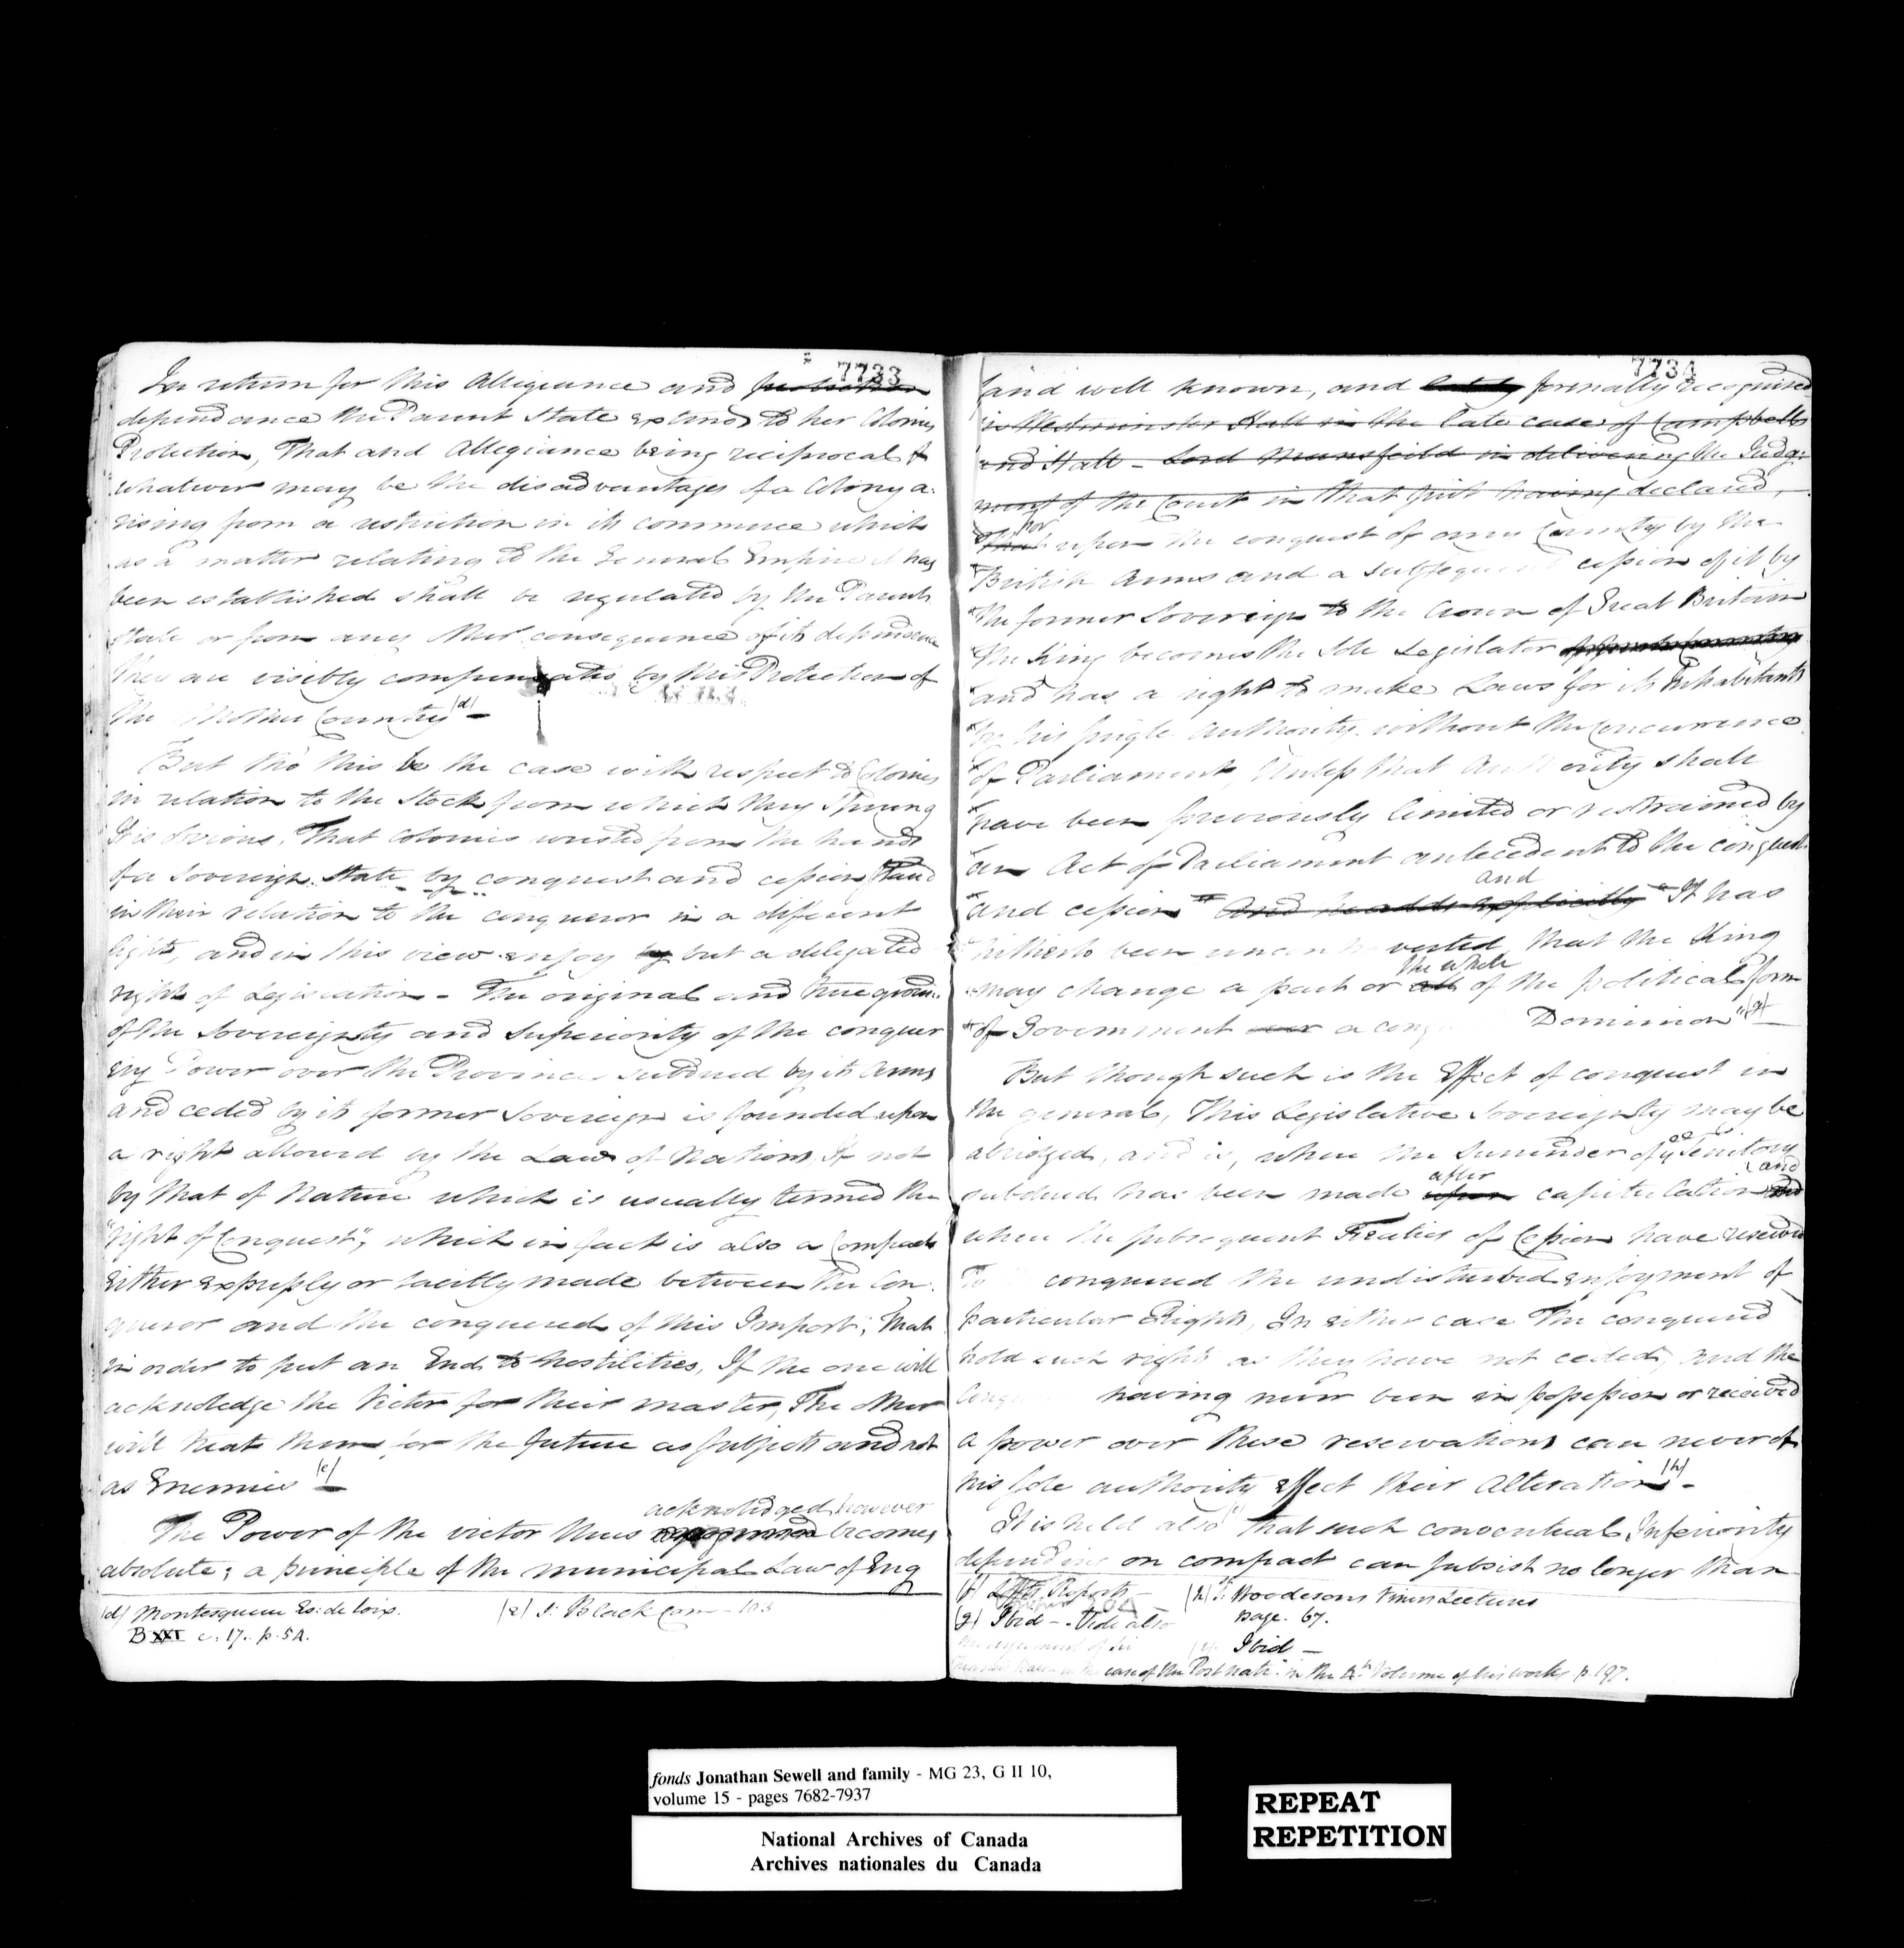 7733
In return for this Allegiance and
dependance the Parent State extends to her Colonies
Protection, That and Allegiance being reciprocal &
whatever may be the disadvantages of a Colony a-
rising from a restriction in its commerce which
as a matter relating to the General Empire it has
been established shall be regulated by the Parent
State or from any other consequence of its dependance
They are visibly compensated by this Protection of
the Mother Country (d) —
But tho' this be the case with respect to Colonies
in relation to the Stock from which they Sprung
It is obvious, That Colonies wrested from the hands
of a Sovereign State by conquest and cession stand
in their relation to the conqueror in a different
light, and in this view enjoy by but a delegated
right of Legislation - The original and true ground
of the Sovereignty and Superiority of the conquer
ing Power over the Province subdued by its Arms
and ceded by its former Sovereign is founded upon
a right allowed by the Law of Nations, If not
by that of Nature which is usually termed the
"right of Conquest", which in fact is also a Compact
Either expressly or tacitly made between the Con-
queror and the conquered of this Import; That
in order to put an End to hostilities, If the one will
acknoledge the Victor for their master, The other
will treat them for the future as subjects and not
as Enemies (e) —
acknoledged however
The Power of the victor thus becomes
absolute; a principle of the municipal Law of Eng
(d) Montesquieu Es: de loix. (e) 1: Black Com — 103
B XXI c. 17. p. 54.
7734
land well known, and lately formally recognised
in Westminster Hall in the late case of Campbell
and Hall - Lord Mansfeild in delivering the Judge-
ment of the Court in that suit having declared,
for
That upon the conquest of any Country by the
British Arms and a subsequent cession of it by
the former Sovereign to the Crown of Great Britain
the King becomes the Sole Legislator
and has a right to make Laws for its Inhabitants
by his single Authority without the Concurrence
of Parliament, Unless that Authority shall
have been previously limited or restrained by
an Act of Parliament antecedent to the conquest
and
and cession And he adds explicitly "It has
hitherto been uncontroverted, that the King
the whole
may change a part or all of the political form
of Government over a conq Dominion" (g) —
But though such is the Effect of conquest in
the general, This Legislative Sovereignty may be
abridged, and is, when the Surrender of y Territory
after and
subdued has been made upon capitulation and
when the subsequent Treaties of Cession have reserved
To conquered the undisturbed enjoyment of
particular Rights, In either case The conquered
hold such rights as they have not ceded, and the
Conq having never been in possession or received
a power over these reservations can never of
his sole authority effect their Alteration (h) -
It is held also that such conventual Inferiority
depending on compact can subsist no longer than
(f) Reports — 204 — (h) 1: Woodesons Viner Lectures
(g) Ibid — Vide also page. 67.
Ibid —
case of the Postnati in the 4th Volume of his works p. 197.
fonds Jonathan Sewell and family - MG 23, G II 10,
volume 15 - pages 7682-7937
National Archives of Canada
Archives nationales du Canada
REPEAT
REPETITION